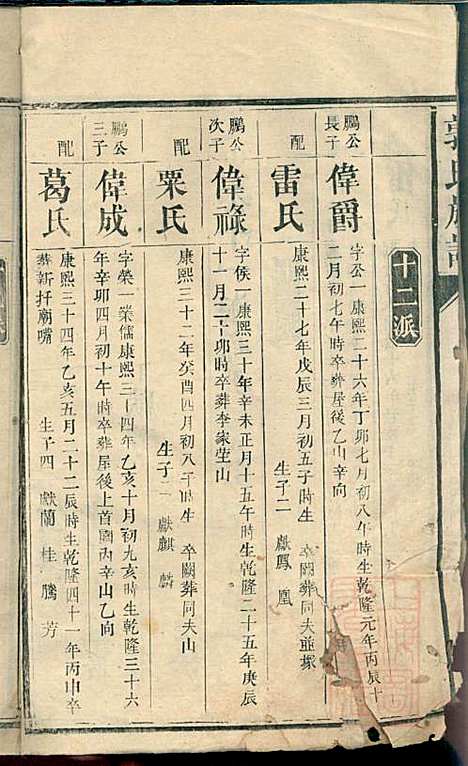 郭氏族譜
十二派
鵬公長子
偉爵
字公一康熙二十六年丁卯七月初八午時生乾隆元年丙辰十
二月初七午時卒葬屋後乙山辛向
配
雷氏
康熙二十七年戊辰三月初五子時生 卒闕葬同夫並塚
生子二 獻鳳 凰
鵬公次子
偉祿
字侯一康熙三十年辛未正月十五午時生乾隆二十五年庚辰
十一月二十卯時卒葬李家莹山
配
粟氏
康熙三十二年癸酉四月初八子時生 卒闕葬同夫山
生子二 獻麒 麟
鵬公三子
偉成
字榮一榮儒康熙三十四年乙亥十月初九亥時生乾隆三十六
年辛卯四月初十午時卒葬屋後上首園內辛山乙向
配
葛氏
康熙三十四年乙亥五月二十二辰時生乾隆四十一年丙申卒
葬新扦廟嘴 生子四 獻蘭 桂 騰 芳